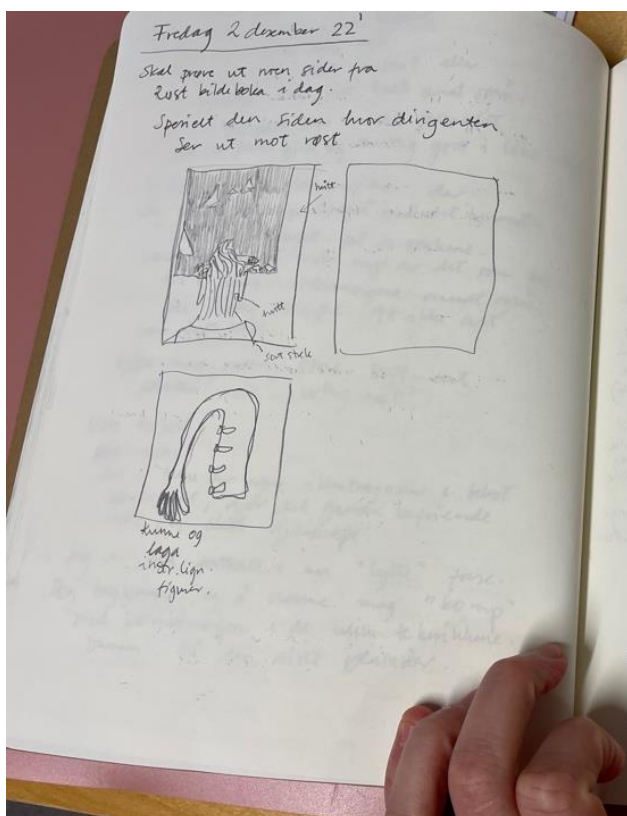 Fredag 2 desember 22'
Skal prøve ut noen sider fra
Rust bildeboka i dag.
Spesielt den siden hvor dirigenten
Ser ut mot røst
hvitt
hvitt
sort strek
Kunne og
laga
instr. lign.
figurer.